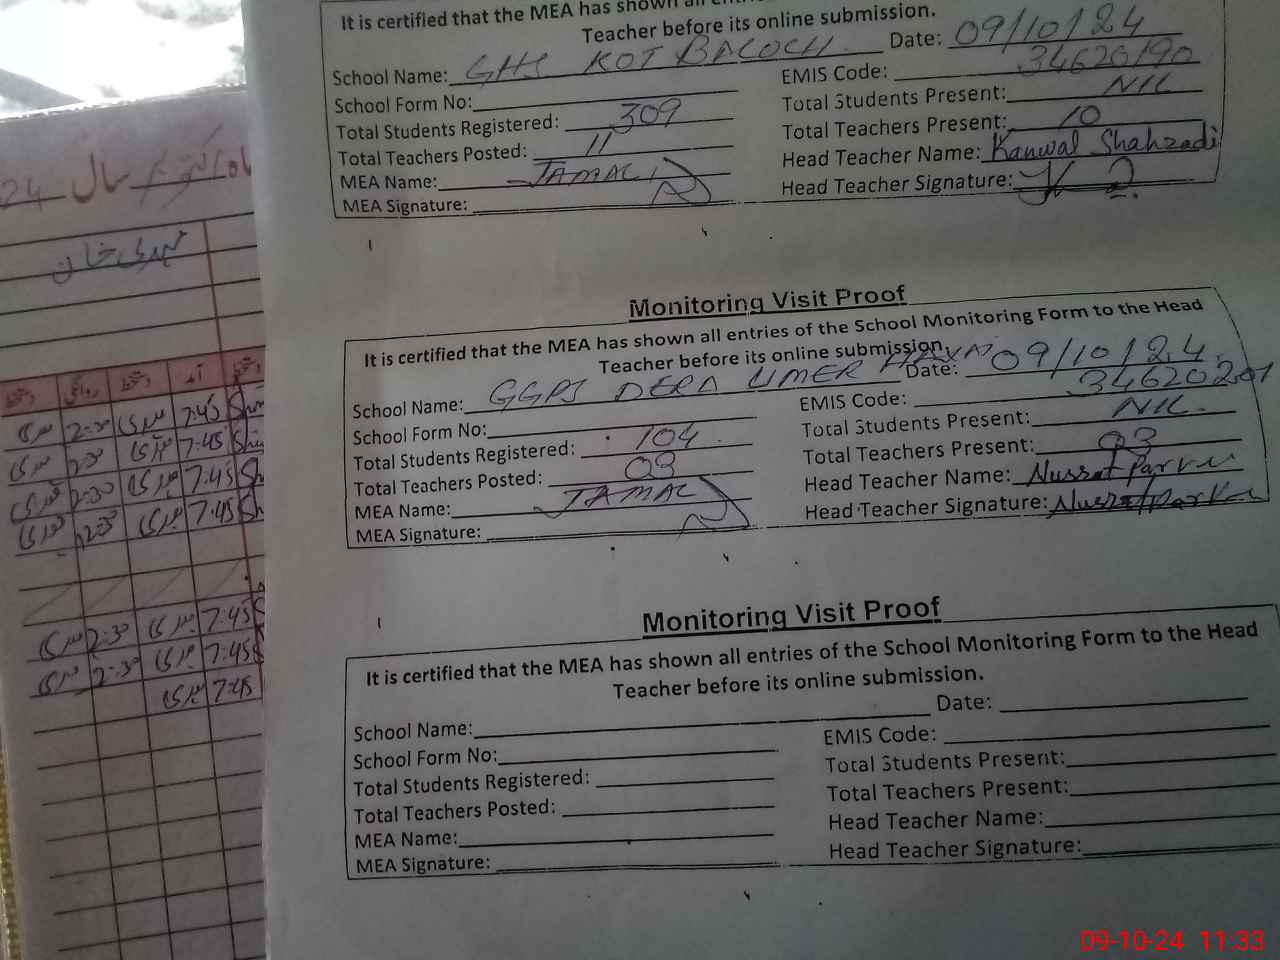 It is certified that the MEA has shown all
Teacher before its online submission.
School Name: GHS KOT BALOCH Date: 09/10/24
School Form No: EMIS Code: 34620190
Total Students Registered: 309 Total Students Present: NIL
Total Teachers Posted: 11 Total Teachers Present: 10
MEA Name: JAMAL Head Teacher Name: Kanwal Shahzadi
MEA Signature: Head Teacher Signature:
Monitoring Visit Proof
It is certified that the MEA has shown all entries of the School Monitoring Form to the Head
Teacher before its online submission.
School Name: GGPS DERA UMER HAYAT Date: 09/10/24
School Form No: EMIS Code: 34620201
Total Students Registered: 104 Total Students Present: NIL
Total Teachers Posted: 03 Total Teachers Present: 03
MEA Name: JAMAL Head Teacher Name: Nussrat Parveen
MEA Signature: Head Teacher Signature: Nussrat Parveen
Monitoring Visit Proof
It is certified that the MEA has shown all entries of the School Monitoring Form to the Head
Teacher before its online submission.
School Name: Date:
School Form No: EMIS Code:
Total Students Registered: Total Students Present:
Total Teachers Posted: Total Teachers Present:
MEA Name: Head Teacher Name:
MEA Signature: Head Teacher Signature:
سال 24
7:45
2:30 7:45
2:30 7:45
7:45
2:30 7:45
2:30 7:45
7:45
09-10-24 11:33